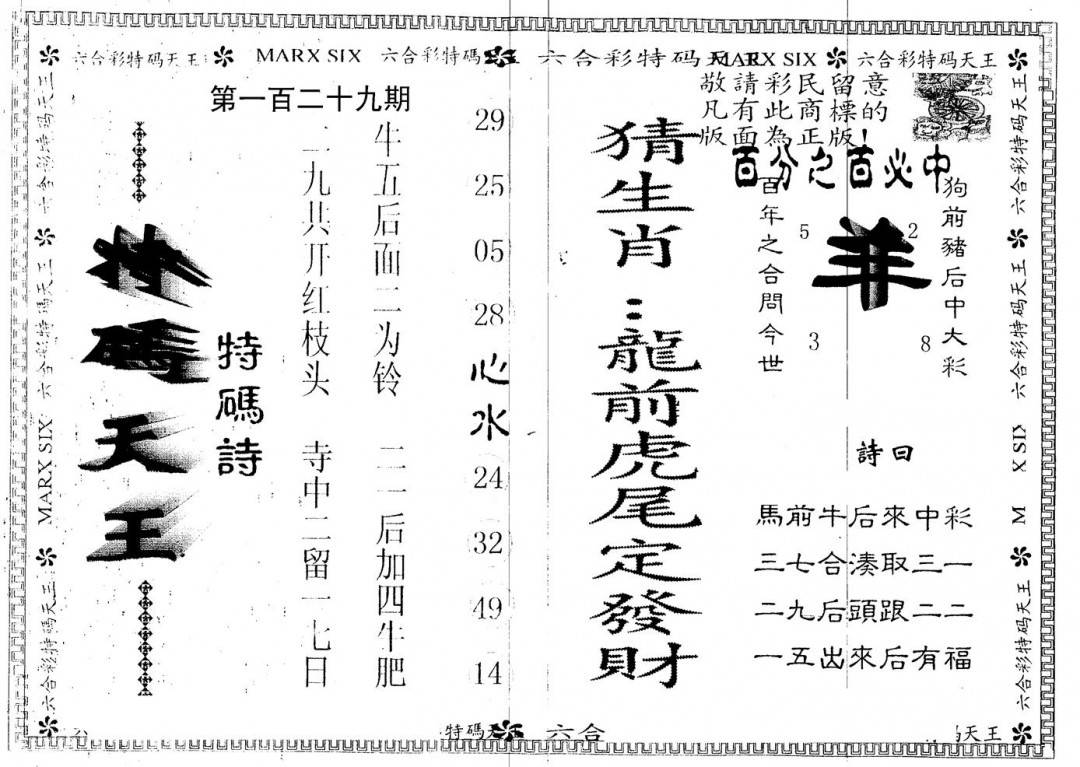 六合彩特码天王 MARX SIX 六合彩特碼 六合彩特码天 MARX SIX 六合彩特码天王
第一百二十九期
敬請彩民留意
凡有此商標的
版面為正版!
百分之百必中
狗前豬后中大彩
羊
5 2
3 8
百年之合問今世
猜生肖:龍前虎尾定發財
詩曰
馬前牛后來中彩
三七合湊取三一
二九后頭跟二二
一五出來后有福
29
25
05
28
心水
24
32
49
14
牛五后面二为铃 二一后加四牛肥
二九共开红枝头 寺中二留一七日
特碼詩
特碼天王
六合彩特码天王
MARX SIX
六合彩特码天王
六合彩特码天王
六合彩特码天王
六合彩特码天王
六合彩特码天王
特碼天 六合
天王